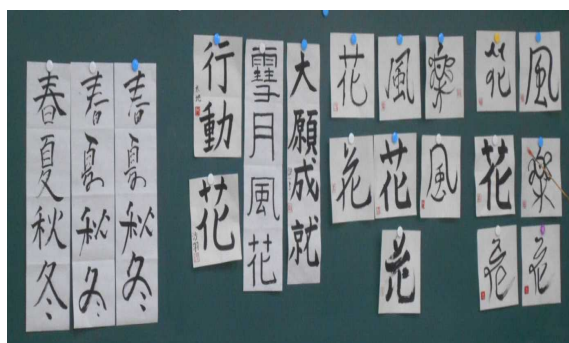 春夏秋冬
春夏秋冬
春夏秋冬
行動
花
雪月風花
大願成就
花
風
樂
花
風
花
花
風
花
樂
花
花
花